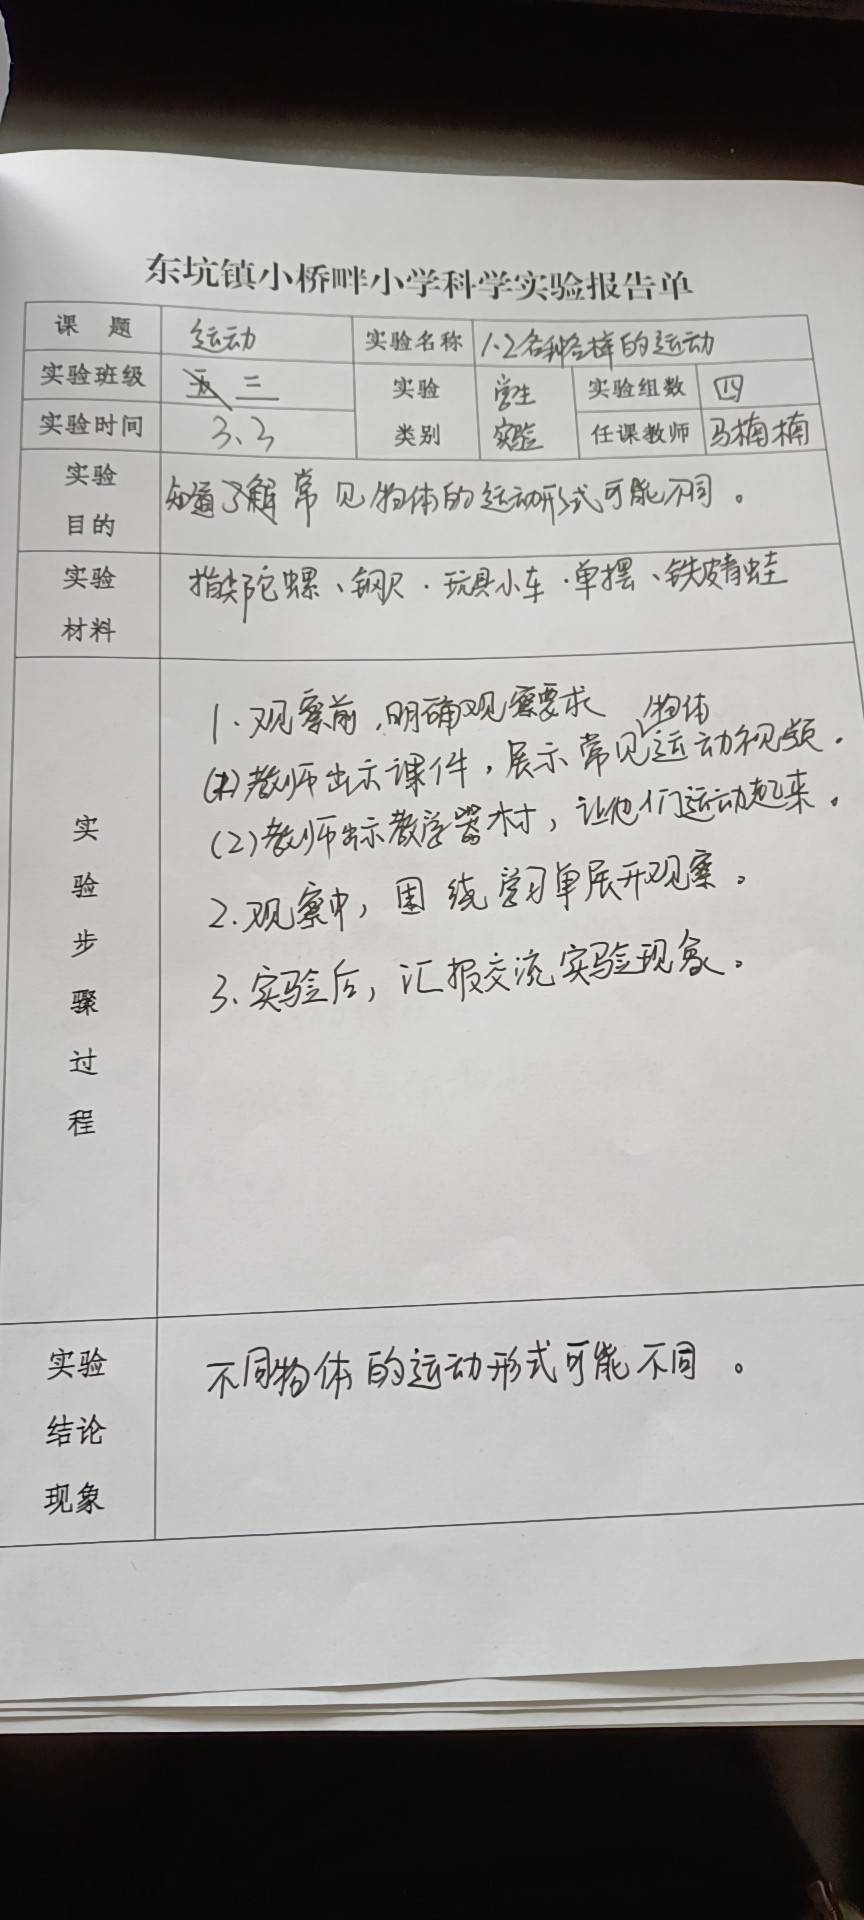 东坑镇小桥畔小学科学实验报告单
课 题 运动 实验名称 1.2各种各样的运动
实验班级 五 三 实验类别 学生实验 实验组数 四
实验时间 3.3 任课教师 马楠楠
实验目的 知道了解常见物体的运动形式可能不同。
实验材料 指尖陀螺、钢尺.玩具小车.单摆、铁皮青蛙
实验步骤过程
1.观察前,明确观察要求
(1)教师出示课件,展示常见物体运动视频。
(2)教师出示教学器材,让他们运动起来。
2.观察中,围绕学习单展开观察。
3.实验后,汇报交流实验现象。
实验结论现象 不同物体的运动形式可能不同。